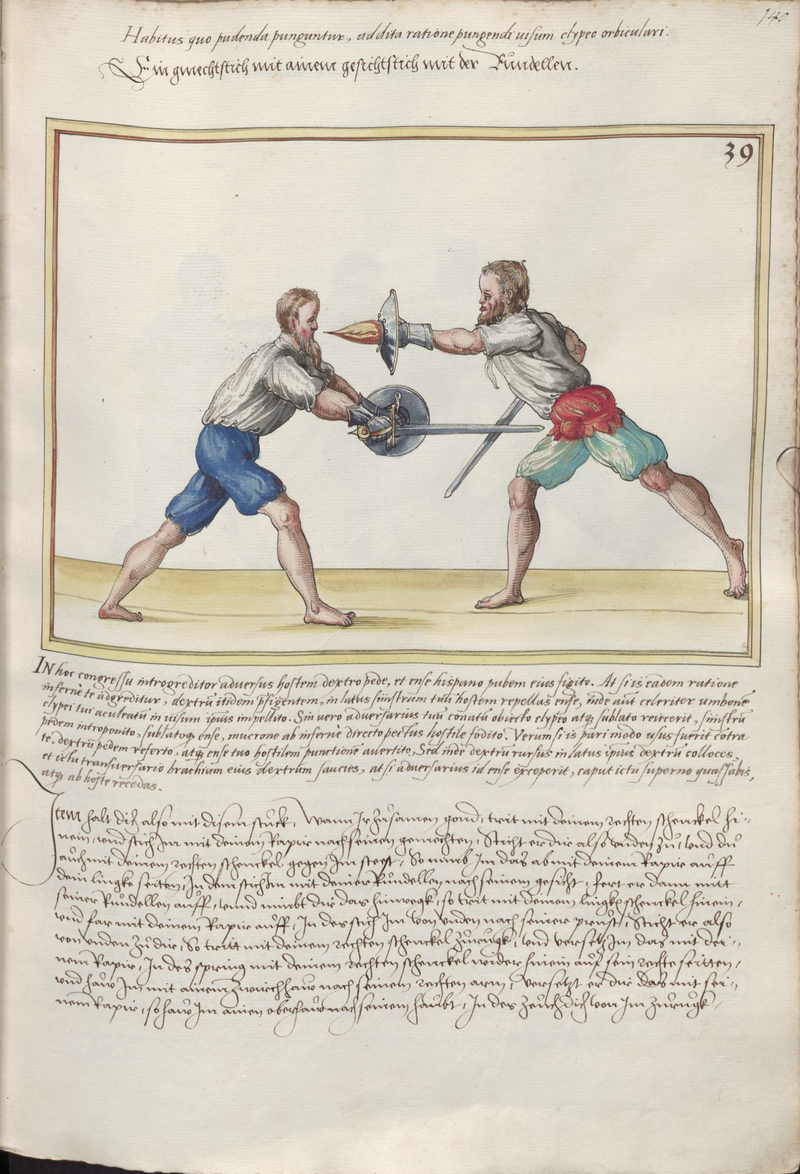 140
Habitus quo pudenda punguntur, addita ratione pungendi uisum clypeo orbiculari.
Ein gmechtstich mit ainem gesichtstich mit der Rundellen.
39
IN hoc congressu introgreditor aduersus hostem dextro pede, et ense hispano pubem eius figito. At si is eadem ratione
inferne te adgreditur, dextrũ itidem p̃figentem, in latus sinistrum tuũ hostem repellas ense, inde aut celeriter umbone
clypei tui aculeati in uisum ipsius impellito. Sin uero aduersarius tuũ conatũ obiecto clypeo atq; sublato reiecerit, sinistrũ
pedem introponito, sublatoq; ense, mucrone ab inferne directo pectus hostile fodito. Verum si is pari modo usus fuerit cõtra
te, dextrũ pedem referto, atq; ense tuo hostilem punctione auertito, Sed inde dextrũ rursus in latus ipsius dextrũ colloces,
et ictu transuersario brachium eius dextrum saucies, at si aduersarius id ense exceperit, caput ictu superno quassabis,
atq; ab hoste recedas.
Item halt dich also mit disem stuck, Wann Ir zusamen gond, trit mit deinem rechten schenckel hi-
nein, vnd stich Im mit deinem Rapir nach seinen gemechten, Sticht er dir also vnden zu, vnd du
auch mit deinem rechten schenckel gegen Im steest, So nimb Im das ab mit deinem Rapir auff
dein lingke seiten, In dem stich Im mit deiner Rundellen nach seinem gesicht, fert er dann mitt
seiner Rundellen auff, vnnd nimbt dir das hinwegk, so trit mit deinem lingke schenckel hinein,
vnd far mit deinem Rapir auff, In des stich Im von vnden nach seiner prust, Sticht er also
von vnden zu dir, So tritt mit deinem rechten schenckel zurugk, vnd versetz Im das mit dei-
nem Rapir, In des spring mit deinem rechten schenckel wider hinein auf sein rechte seitten,
vnd haw Im mit ainem zwerchhaw nach seinem rechten arm, versetzt er dir das mit sei-
nem Rapir, so haw Im ainen oberhaw nach seinem haubt, In des zeuch dich von Im zurugk